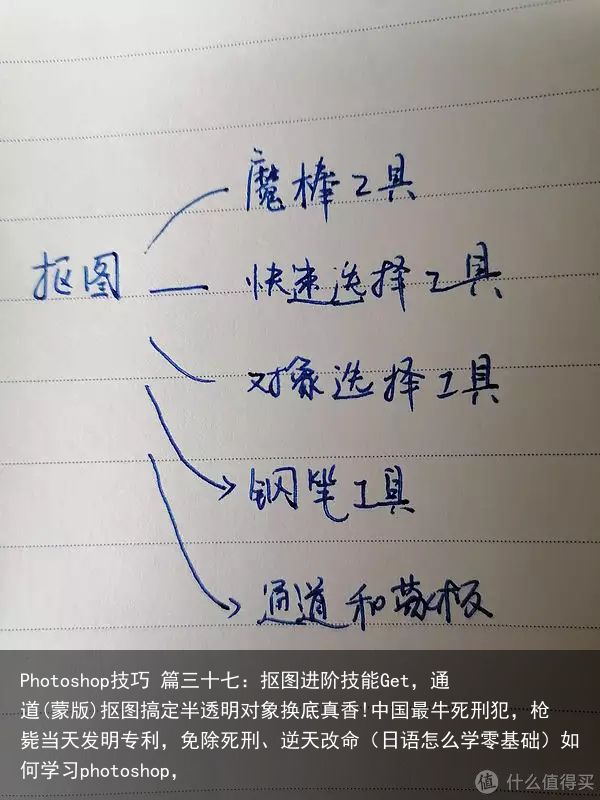 魔棒工具
抠图
快速选择工具
对象选择工具
钢笔工具
通道和蒙板
Photoshop技巧 篇三十七：抠图进阶技能Get，通
道(蒙版)抠图搞定半透明对象换底真香!中国最牛死刑犯，枪
毙当天发明专利，免除死刑、逆天改命（日语怎么学零基础）如
何学习photoshop，
值 什么值得买